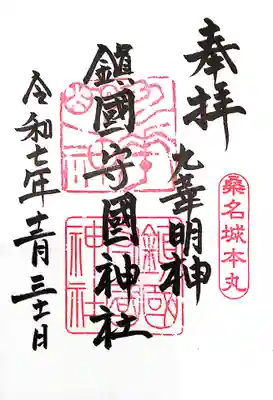 奉拝
桑名城本丸
九華明神
鎮國守國神社
鎮國
守國
神社
令和七年十二月三十一日